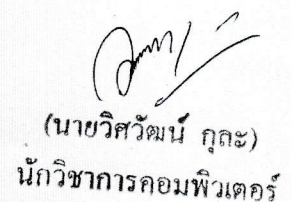 (นายวิศวัฒน์ กุละ)
นักวิชาการคอมพิวเตอร์